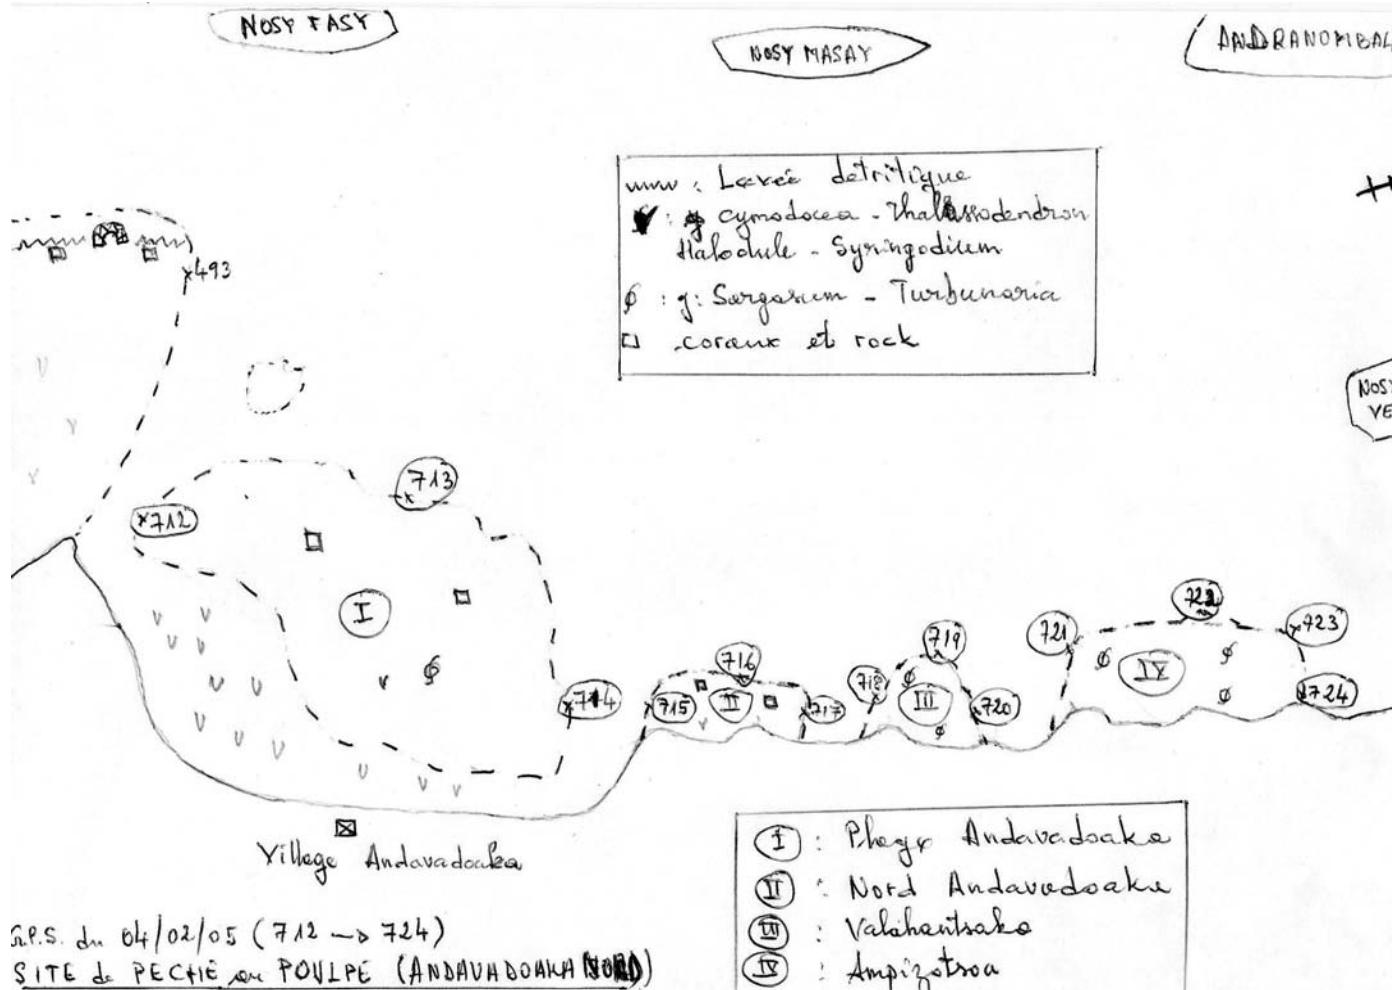 NOSY FASY
NOSY MASAY
ANDRANOMBAL
: Levée détritique
: g cymodocea - Thalassodendron
Halodule - Syringodium
: g: Sargassum - Turbunaria
coraux et rock
493
NOSY
VE
713
712
I
714
715
716
II
717
718
719
III
720
721
722
IV
723
724
Village Andavadoaka
I : Plage Andavadoaka
II : Nord Andavadoaka
III : Valahantsako
IV : Ampizotsoa
G.P.S. du 04/02/05 (712 → 724)
SITE de PECHE au POULPE (ANDAVADOAKA NORD)